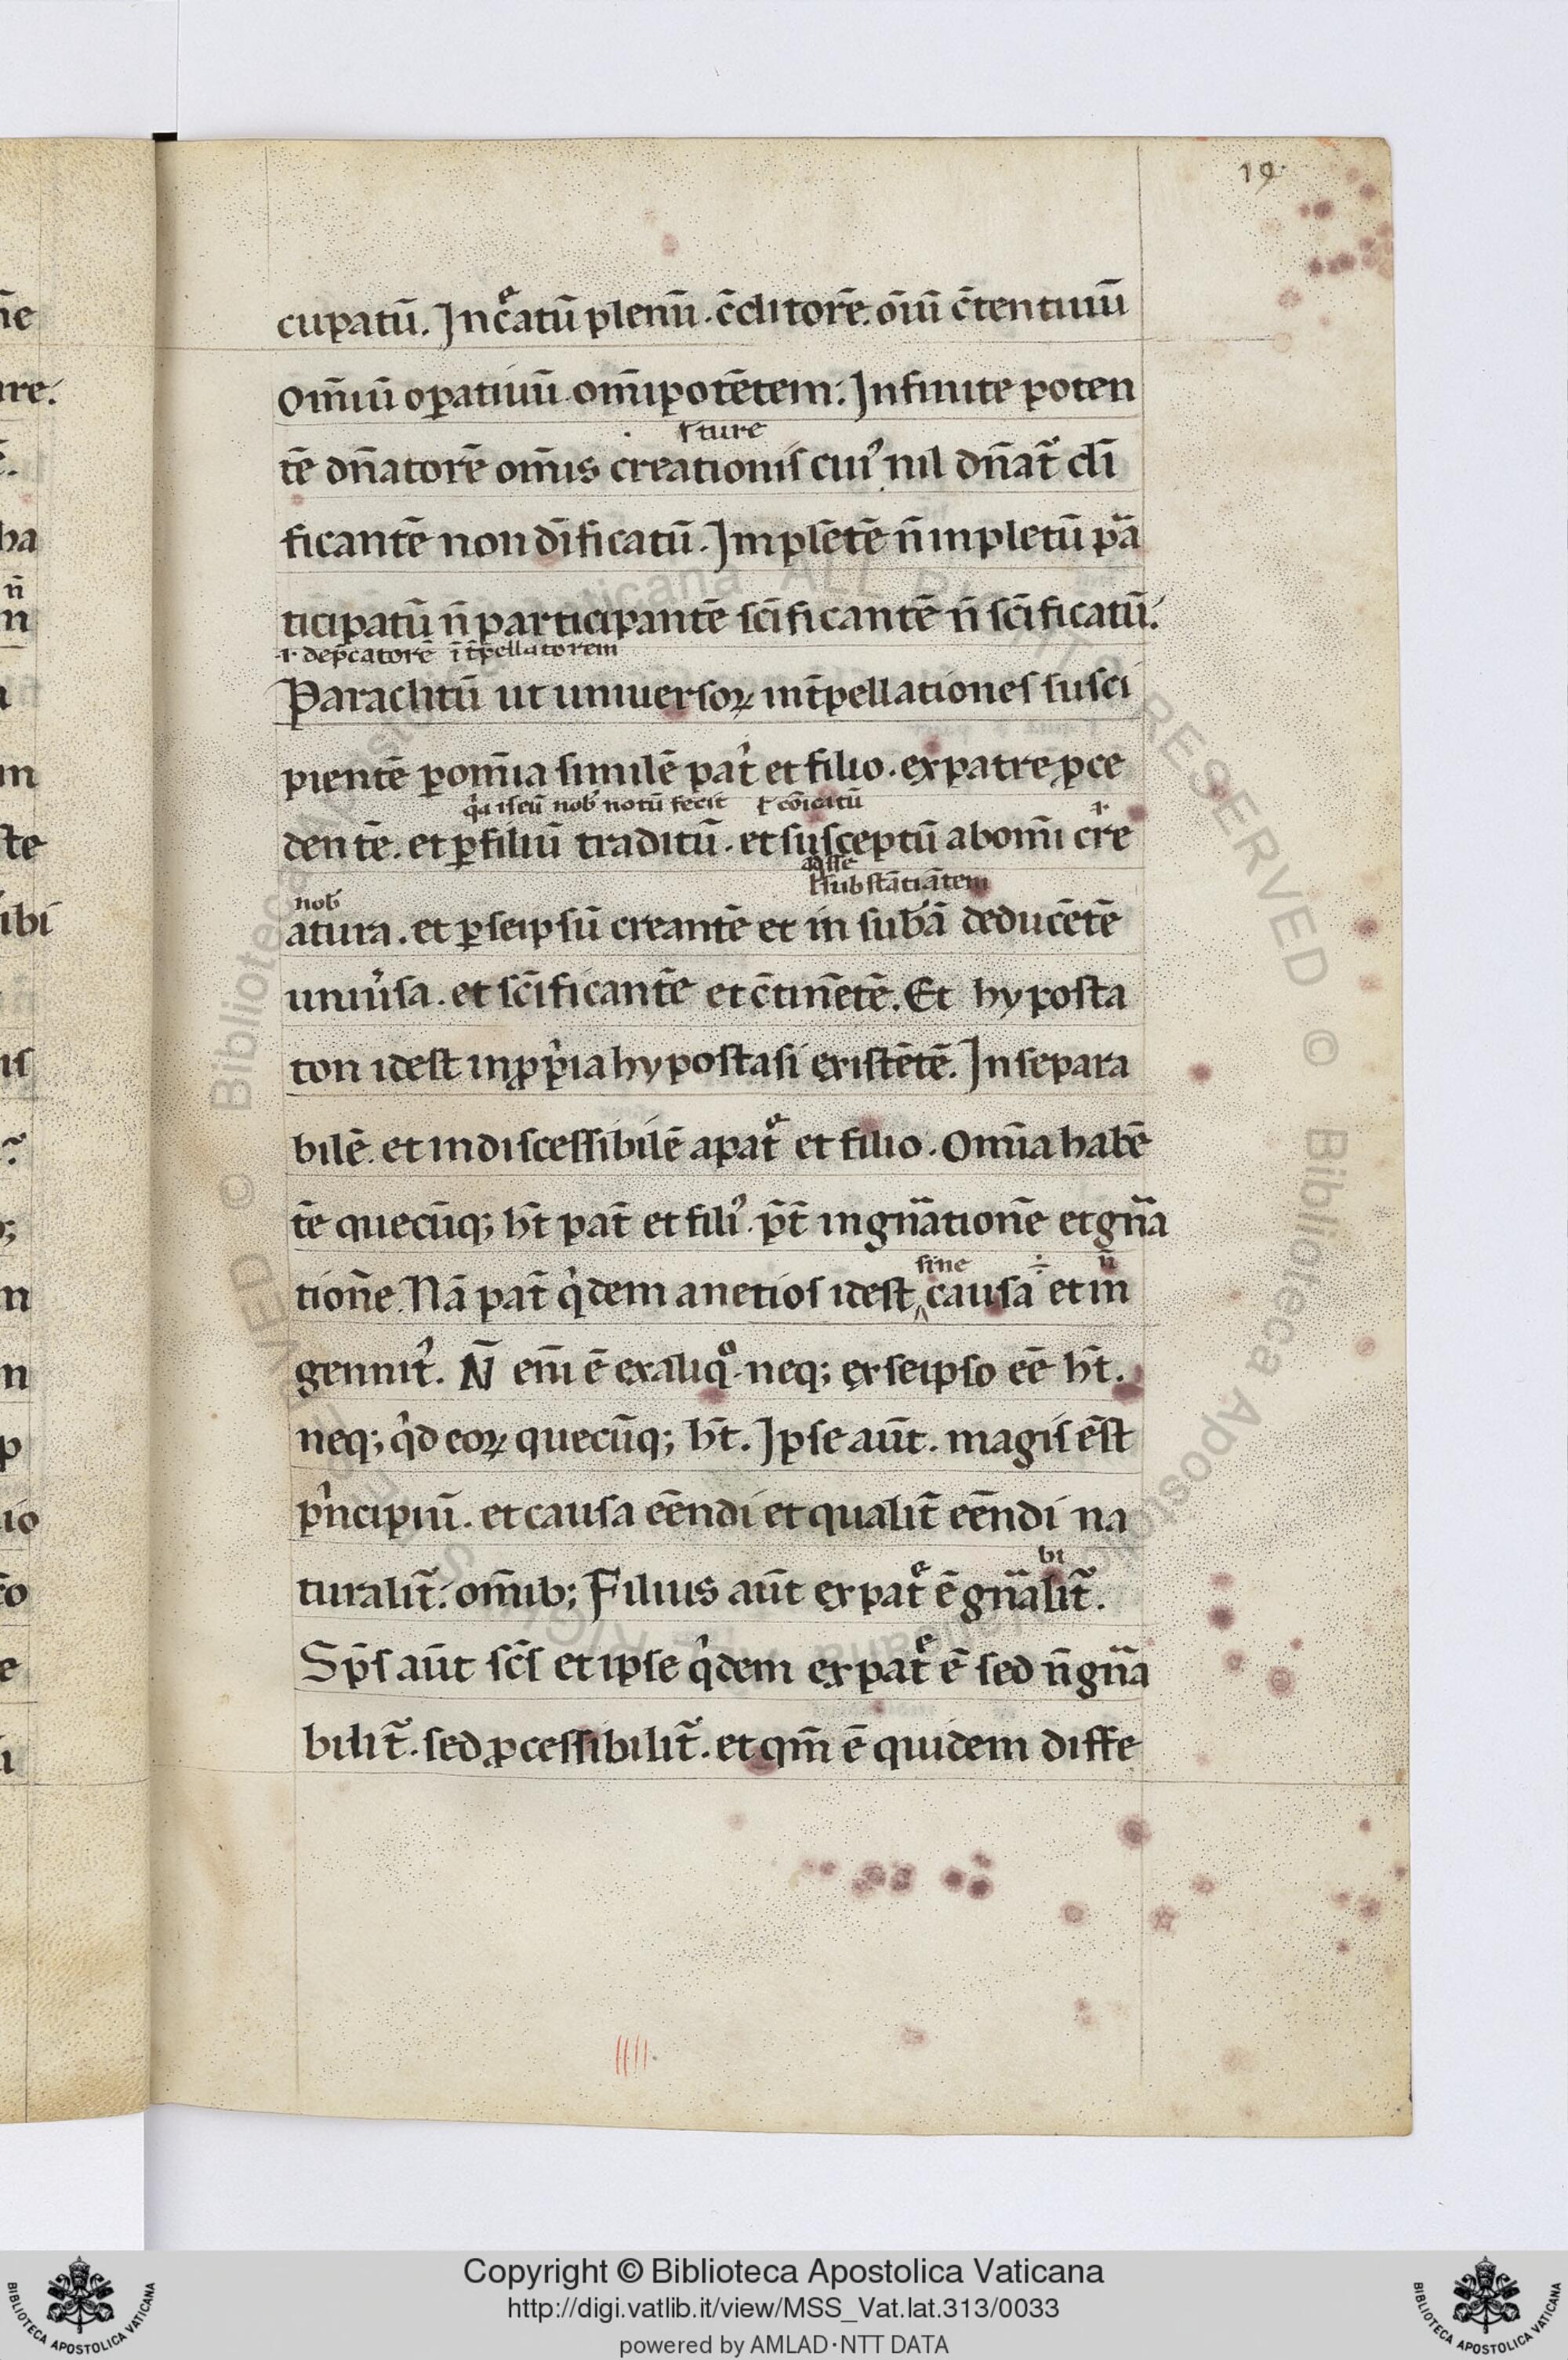 19.
cupatū. Jnc̄ͤatū plenū. c̄ditorē. oīū c̄tentiuū
om̄iū oꝑatiuū. om̄ipotētem: Jnfinite poten
ſ ture
tē dn̄atorē om̄is creationiſ cuiꝰ nil dn̄at᷑ di
ficantē non dīficatū. Jmplētē n̄ inpletū ꝑa
ticipatū n̄ participantē ſcīficantē n̄ ſcīficatū.
.i. dep̄catorē īt̄pellatorem
Paraclitū ut uniuerſoꝝ int̄pellationeſ ſuſci
pientē ꝑ om̄ia ſimilē patͥ et filio. ex patre ꝓce
qͥa iſeū nob̛ notū fecit ł cōicatū
dentē. et ꝑ filiū traditū. et ſuſceptū ab om̄i cr̄e
adeſſe
ł ſubſtātiātem
nob̛
atura. et ꝑ ſeipſū creantē et in ſub̛ā deducētē
uniu̓ſa. et ſcīficantē et c̄tinētē. Et hypoſta
ton ideſt in ꝓpͥa hypoſtaſi exiſtētē. Jnſepara
bilē. et indiſceſſibilē a patͤ et filio. Om̄ia habē
tē quecūq; h̄t pat̄ et filiꝰ. p̄t̄ ingn̄ationē et gn̄a
tionē. Nā pat̄ qͥdem anetioſ ideſt cauſa et in
ſine ÷ n̄
gennitꝰ. N̄ em̄ ē ex aliqͦ. neq; ex ſeipſo eē h̄t.
neq; qͥd eoꝝ quecūq; h̄t. Jpſe aūt. magiſ ēſt
pͥncipiū. et cauſa eēndi et qualit̄ eēndi na
turalit᷑. om̄ib; Filius aūt ex patͤ ē gn̄alit᷑.
bi
Sp̄ſ aūt ſc̄ſ et ipſe qͥdem ex patͤ ē ſed n̄ gn̄a
bilit᷑. ſed ꝓceſſibilit᷑. et qm̄ ē quidem diffe
Copyright © Biblioteca Apostolica Vaticana
http://digi.vatlib.it/view/MSS_Vat.lat.313/0033
powered by AMLAD·NTT DATA
BIBLIOTECA APOSTOLICA VATICANA
BIBLIOTECA APOSTOLICA VATICANA